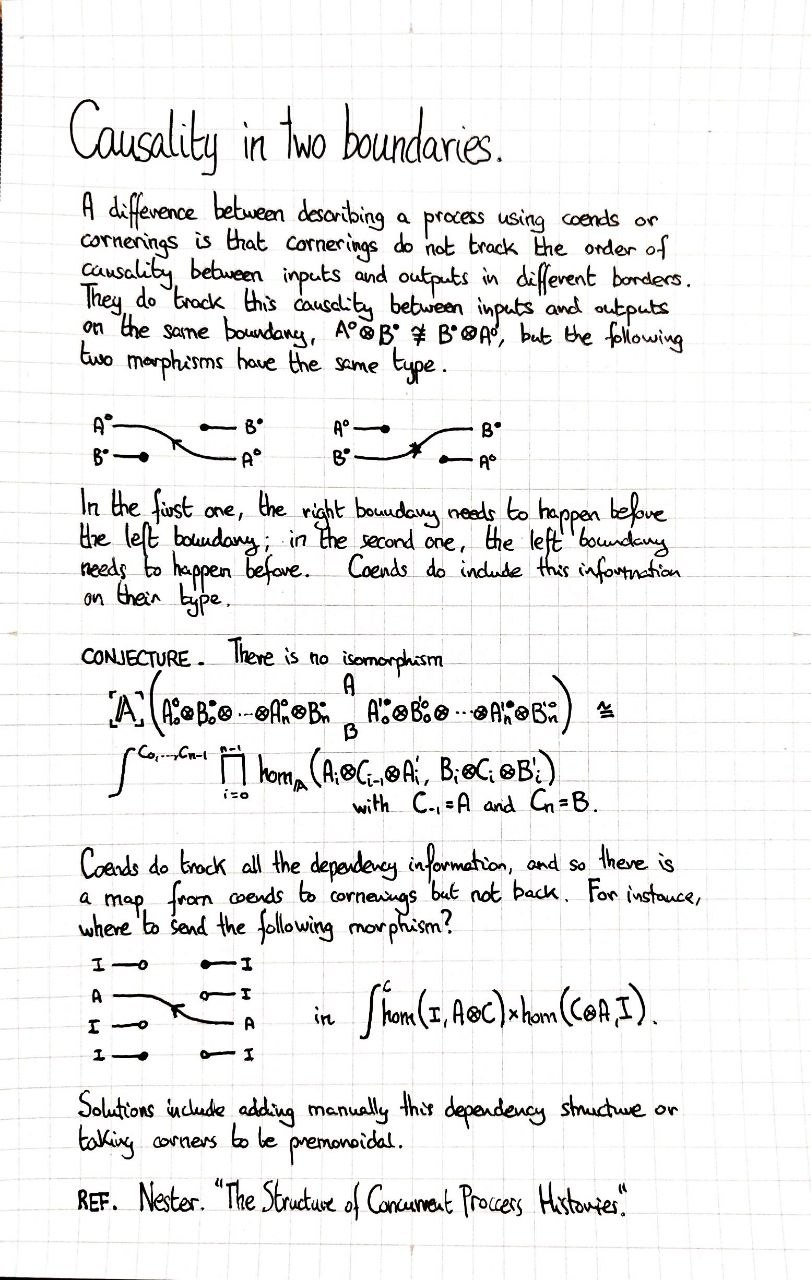 Causality in two boundaries.
A difference between describing a process using coends or
cornerings is that cornerings do not track the order of
causality between inputs and outputs in different borders.
They do track this causality between inputs and outputs
on the same boundary, A°⊗B• ≇ B•⊗A°, but the following
two morphisms have the same type.
A° B• A° B•
B• A° B• A°
In the first one, the right boundary needs to happen before
the left boundary; in the second one, the left boundary
needs to happen before. Coends do include this information
on their type.
CONJECTURE. There is no isomorphism
[A](A₀°⊗B₀•⊗...⊗Aₙ°⊗Bₙ• A B A'₀°⊗B'₀•⊗...⊗A'ₙ°⊗B'ₙ•) ≅
∫^C₀,...,Cₙ₋₁ ∏ᵢ₌₀ⁿ⁻¹ hom_A (Aᵢ⊗Cᵢ₋₁⊗A'ᵢ, Bᵢ⊗Cᵢ⊗B'ᵢ)
with C₋₁=A and Cₙ=B.
Coends do track all the dependency information, and so there is
a map from coends to cornerings but not back. For instance,
where to send the following morphism?
I I
A I
I A
I I
in ∫^C hom(I, A⊗C)×hom(C⊗A, I).
Solutions include adding manually this dependency structure or
taking corners to be premonoidal.
REF. Nester. "The Structure of Concurrent Process Histories."